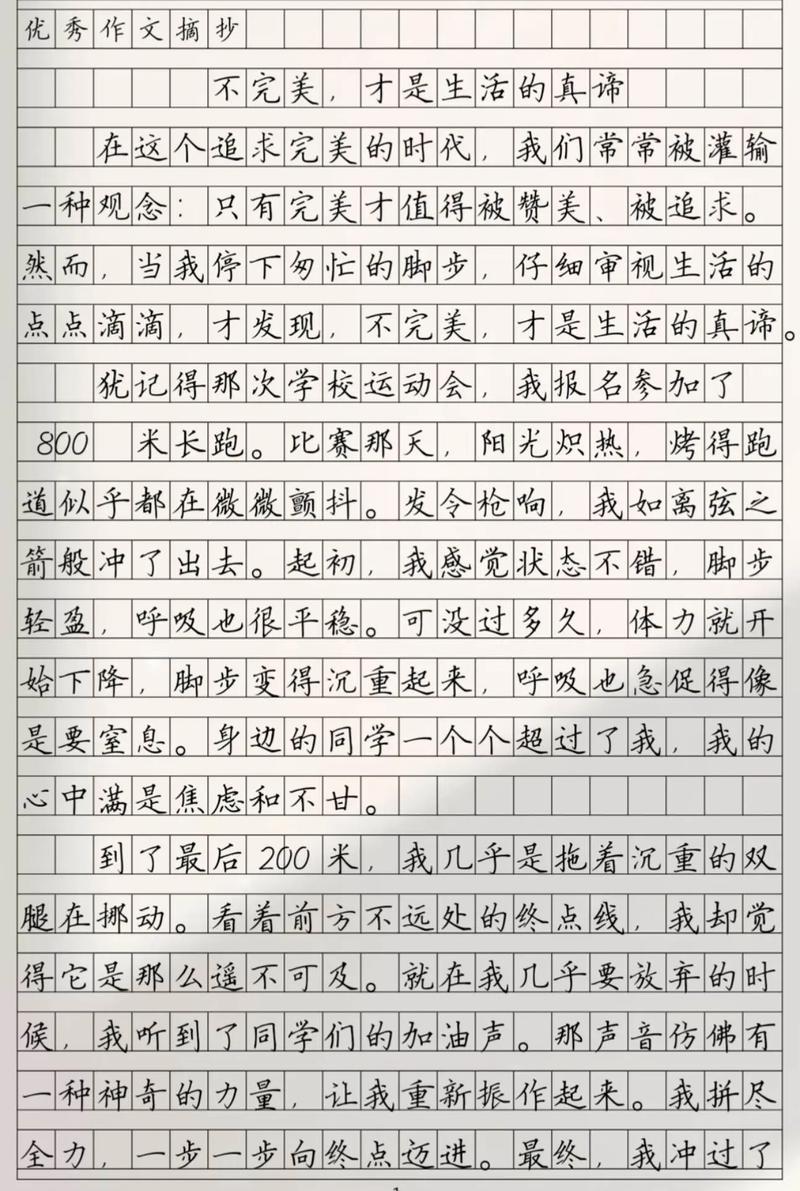 优秀作文摘抄
不完美，才是生活的真谛
在这个追求完美的时代，我们常常被灌输
一种观念：只有完美才值得被赞美、被追求。
然而，当我停下匆忙的脚步，仔细审视生活的
点点滴滴，才发现，不完美，才是生活的真谛。
犹记得那次学校运动会，我报名参加了
800 米长跑。比赛那天，阳光炽热，烤得跑
道似乎都在微微颤抖。发令枪响，我如离弦之
箭般冲了出去。起初，我感觉状态不错，脚步
轻盈，呼吸也很平稳。可没过多久，体力就开
始下降，脚步变得沉重起来，呼吸也急促得像
是要窒息。身边的同学一个个超过了我，我的
心中满是焦虑和不甘。
到了最后200米，我几乎是拖着沉重的双
腿在挪动。看着前方不远处的终点线，我却觉
得它是那么遥不可及。就在我几乎要放弃的时
候，我听到了同学们的加油声。那声音仿佛有
一种神奇的力量，让我重新振作起来。我拼尽
全力，一步一步向终点迈进。最终，我冲过了
1